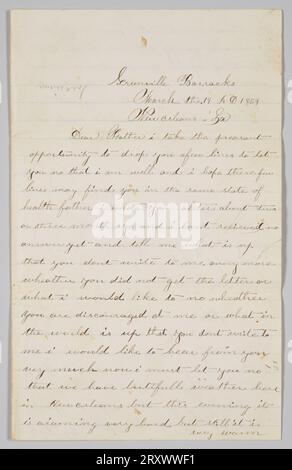 Greenville Barracks
March the 19 A D 1869
New orleans La
Dear Father i take the preasant
opportunity to drop you a few lines to let
you no that i am well and i hope these few
lines may find you in the same state of
health father i you a letter about two
or three months ago and i hant received no
answer yet and tell me what is up
that you dont write to me eney more
wheather you did not get the letter or
what i would like to no wheather
you are discouraged at me or what in
the world is up that you dont write to
me i would like to hear from you
very much now i must let you no
that we have butifull weather here
in New orleans but this evening it
is raining very hard but still it is
very warm
alamy
Image ID: 2RXWWF1
www.alamy.com